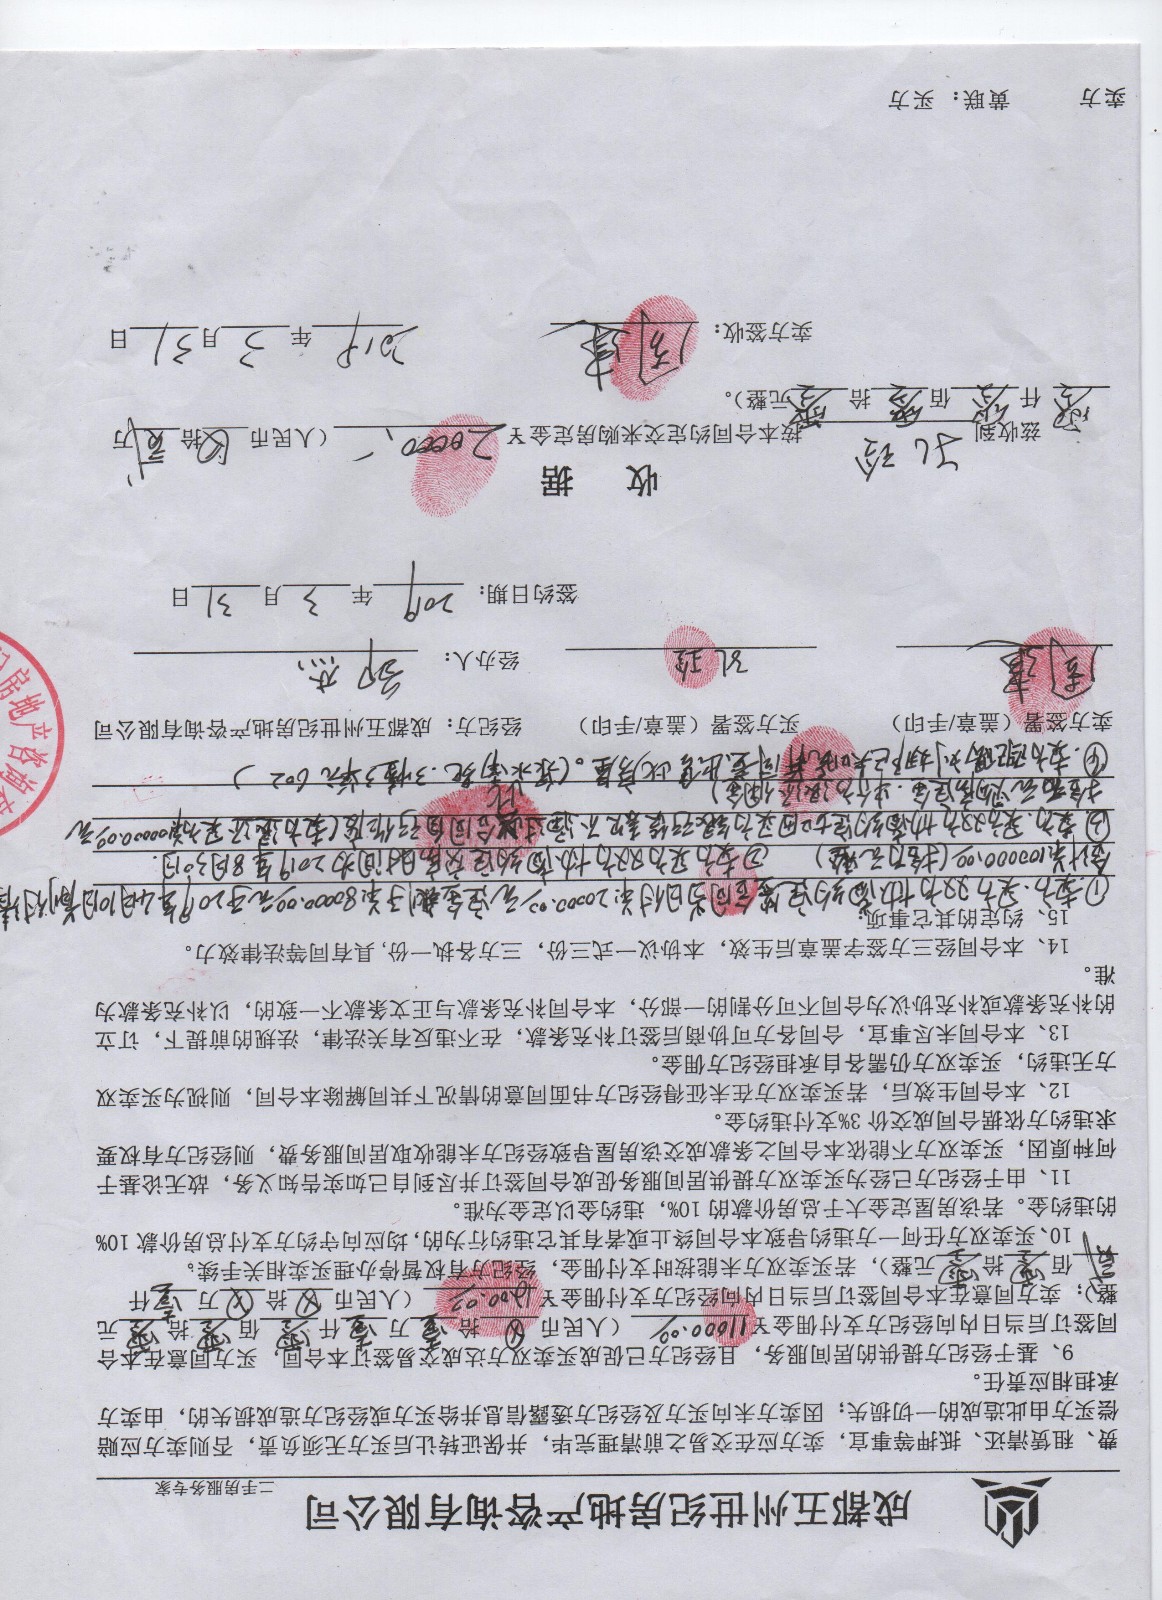 成都五州世纪房地产咨询有限公司
二手房服务专家
费、租赁清还、抵押等事宜，卖方应在交易之前清理完毕，并保证转让后买方无须负责，否则卖方应赔
偿买方由此造成的一切损失；因卖方未向买方及经纪方透露信息并给买方或经纪方造成损失的，由卖方
承担相应责任。
9、基于经纪方提供的居间服务，且经纪方已促成买卖双方达成交易签订本合同，买方同意在本合
同签订后当日内向经纪方支付佣金¥ 11000.00 （人民币 ⊗ 拾 壹 万 壹 仟 零 佰 零 拾 零 元
整）；卖方同意在本合同签订后当日内向经纪方支付佣金¥ （人民币 ⊗ 拾 ⊗ 万 壹 仟
佰 零 拾 零 元整），若买卖双方未能按时支付佣金，经纪方有权暂停办理买卖相关手续。
10、买卖双方任何一方违约导致本合同终止或者有其它违约行为的，均应向守约方支付总房价款 10%
的违约金。若该房屋定金大于总房价款的 10%，违约金以定金为准。
11、由于经纪方已经为买卖双方提供居间服务促成合同签订并尽到自己如实告知义务，故无论基于
何种原因，买卖双方不能依本合同之条款成交该房屋导致经纪方未能收取居间服务费，则经纪方有权要
求违约方依据合同成交价 3%支付违约金。
12、本合同生效后，若买卖双方在未征得经纪方书面同意的情况下共同解除本合同，则视为买卖双
方无违约，买卖双方仍需各自承担经纪方佣金。
13、本合同未尽事宜，合同各方可协商后签订补充条款，在不违反有关法律，法规的前提下，订立
的补充条款或补充协议为合同不可分割的一部分，本合同补充条款与正文条款不一致的，以补充条款为
准。
14、本合同经三方签字盖章后生效，本协议一式三份，三方各执一份，具有同等法律效力。
15、约定的其它事项：
①卖方.买方双方协商约定签合同当日付¥20000.00元定金剩于¥80000.00元于2019年4月10日前付清
合计¥100000.00(拾万元整) ②卖方买方双方协商约定交房时间为2019年8月30日.
③卖方.买方双方协商约定
卖方签署（盖章/手印） 买方签署（盖章/手印） 经纪方：成都五州世纪房地产咨询有限公司
孔玲 经办人：
签约日期： 2019 年 3 月 31 日
收 据
兹收到 孔玲 按本合同约定交来购房定金¥ 20000 （人民币 ⊗ 拾 贰 万
零 仟 零 佰 零 拾 零 元整）。
卖方签收： 2019 年 3 月 31 日
卖方 黄联： 买方
房地产咨询